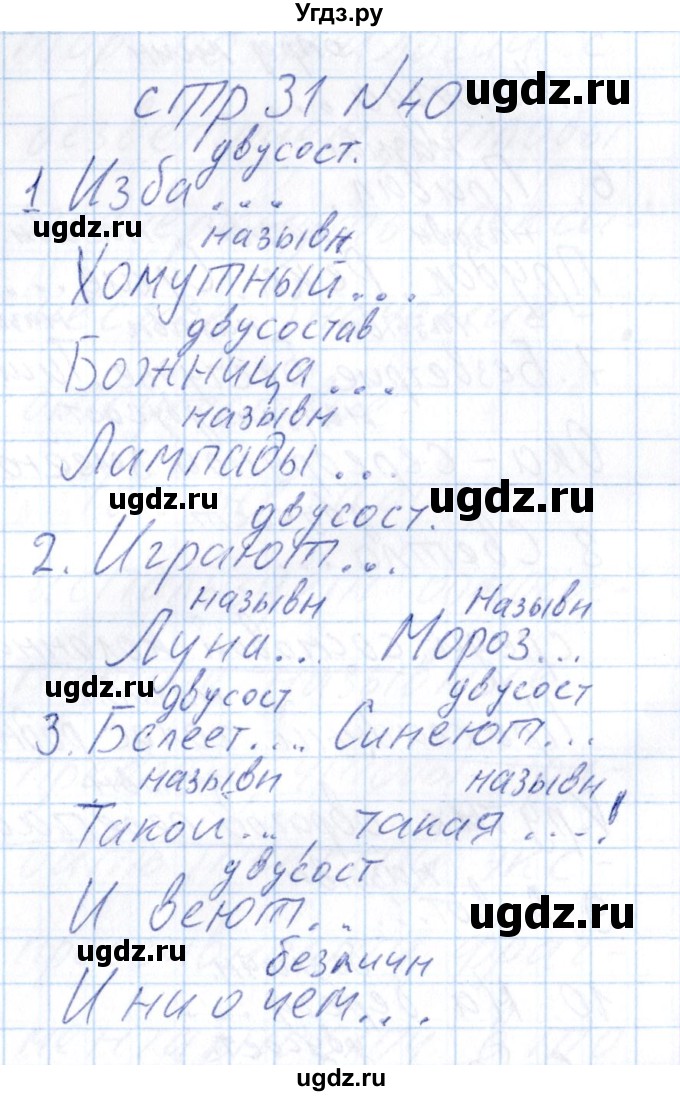 Угдз.ру
стр 31 №40
ugdz.ru
двусост.
1 Изба...
ugdz.ru
назывн
Хомутный...
двусостав
Божница...
назывн
Лампады...
ugdz.ru
ugdz.ru
двусост.
2. Играют...
назывн Назывн
Луна... Мороз...
ugdz.ru
двусост двусост
3. Белеет.... Синеют...
назывн назывн
Такой..., такая....!
двусост
И веют...
ugdz.ru
ugdz.ru
безличн
И ни о чем....
ugdz.ru